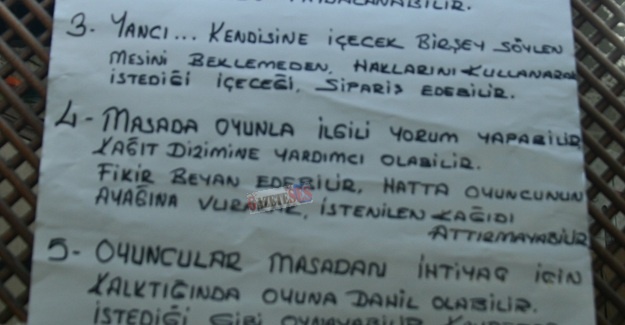 3. YANCI... KENDİSİNE İÇECEK BİRŞEY SÖYLEN
MESİNİ BEKLEMEDEN, HAKLARINI KULLANARAK
İSTEDİĞİ İÇECEĞİ, SİPARİŞ EDEBİLİR.
4- MASADA OYUNLA İLGİLİ YORUM YAPABİLİR
KAĞIT DİZİMİNE YARDIMCI OLABİLİR.
FİKİR BEYAN EDEBİLİR, HATTA OYUNCUNUN
AYAĞINA İSTENİLEN KAĞIDI
ATTIRMAYABİLİR
5- OYUNCULAR MASADAN İHTİYAÇ İÇİN
KALKTIĞINDA OYUNA DAHİL OLABİLİR.
İSTEDİĞİ GİBİ OYNAYABİLİR